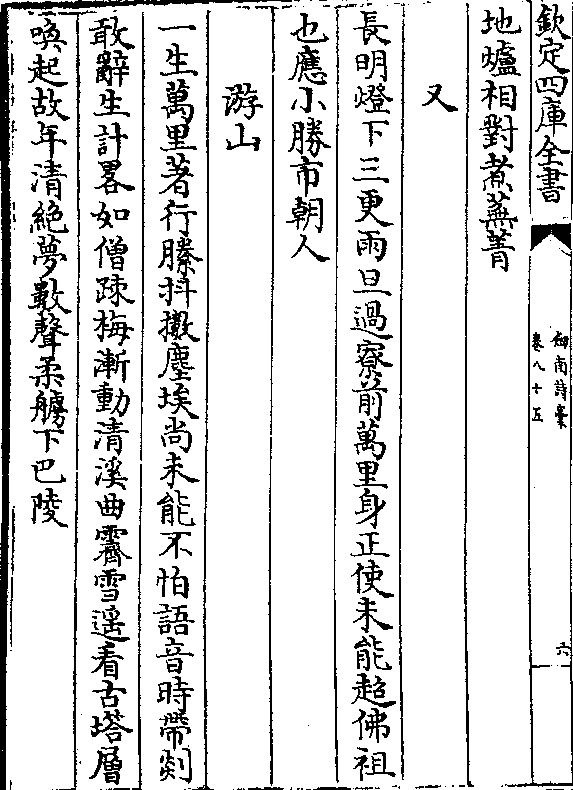 欽定四庫全書
劍南詩藁
卷八十五
六
地爐相對煮蕪菁
又
長明燈下三更雨旦過寮前萬里身正使未能超佛祖
也應小勝市朝人
游山
一生萬里著行縢抖擻塵埃尚未能不怕語音時帶剡
敢辭生計畧如僧疎梅漸動清溪曲霽雪遥看古塔層
喚起故年清絶夢數聲柔艣下巴陵